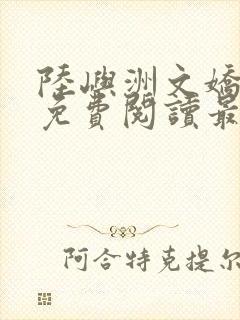 陸嶼洲文嬌
免費閱讀最
阿合特克提尔